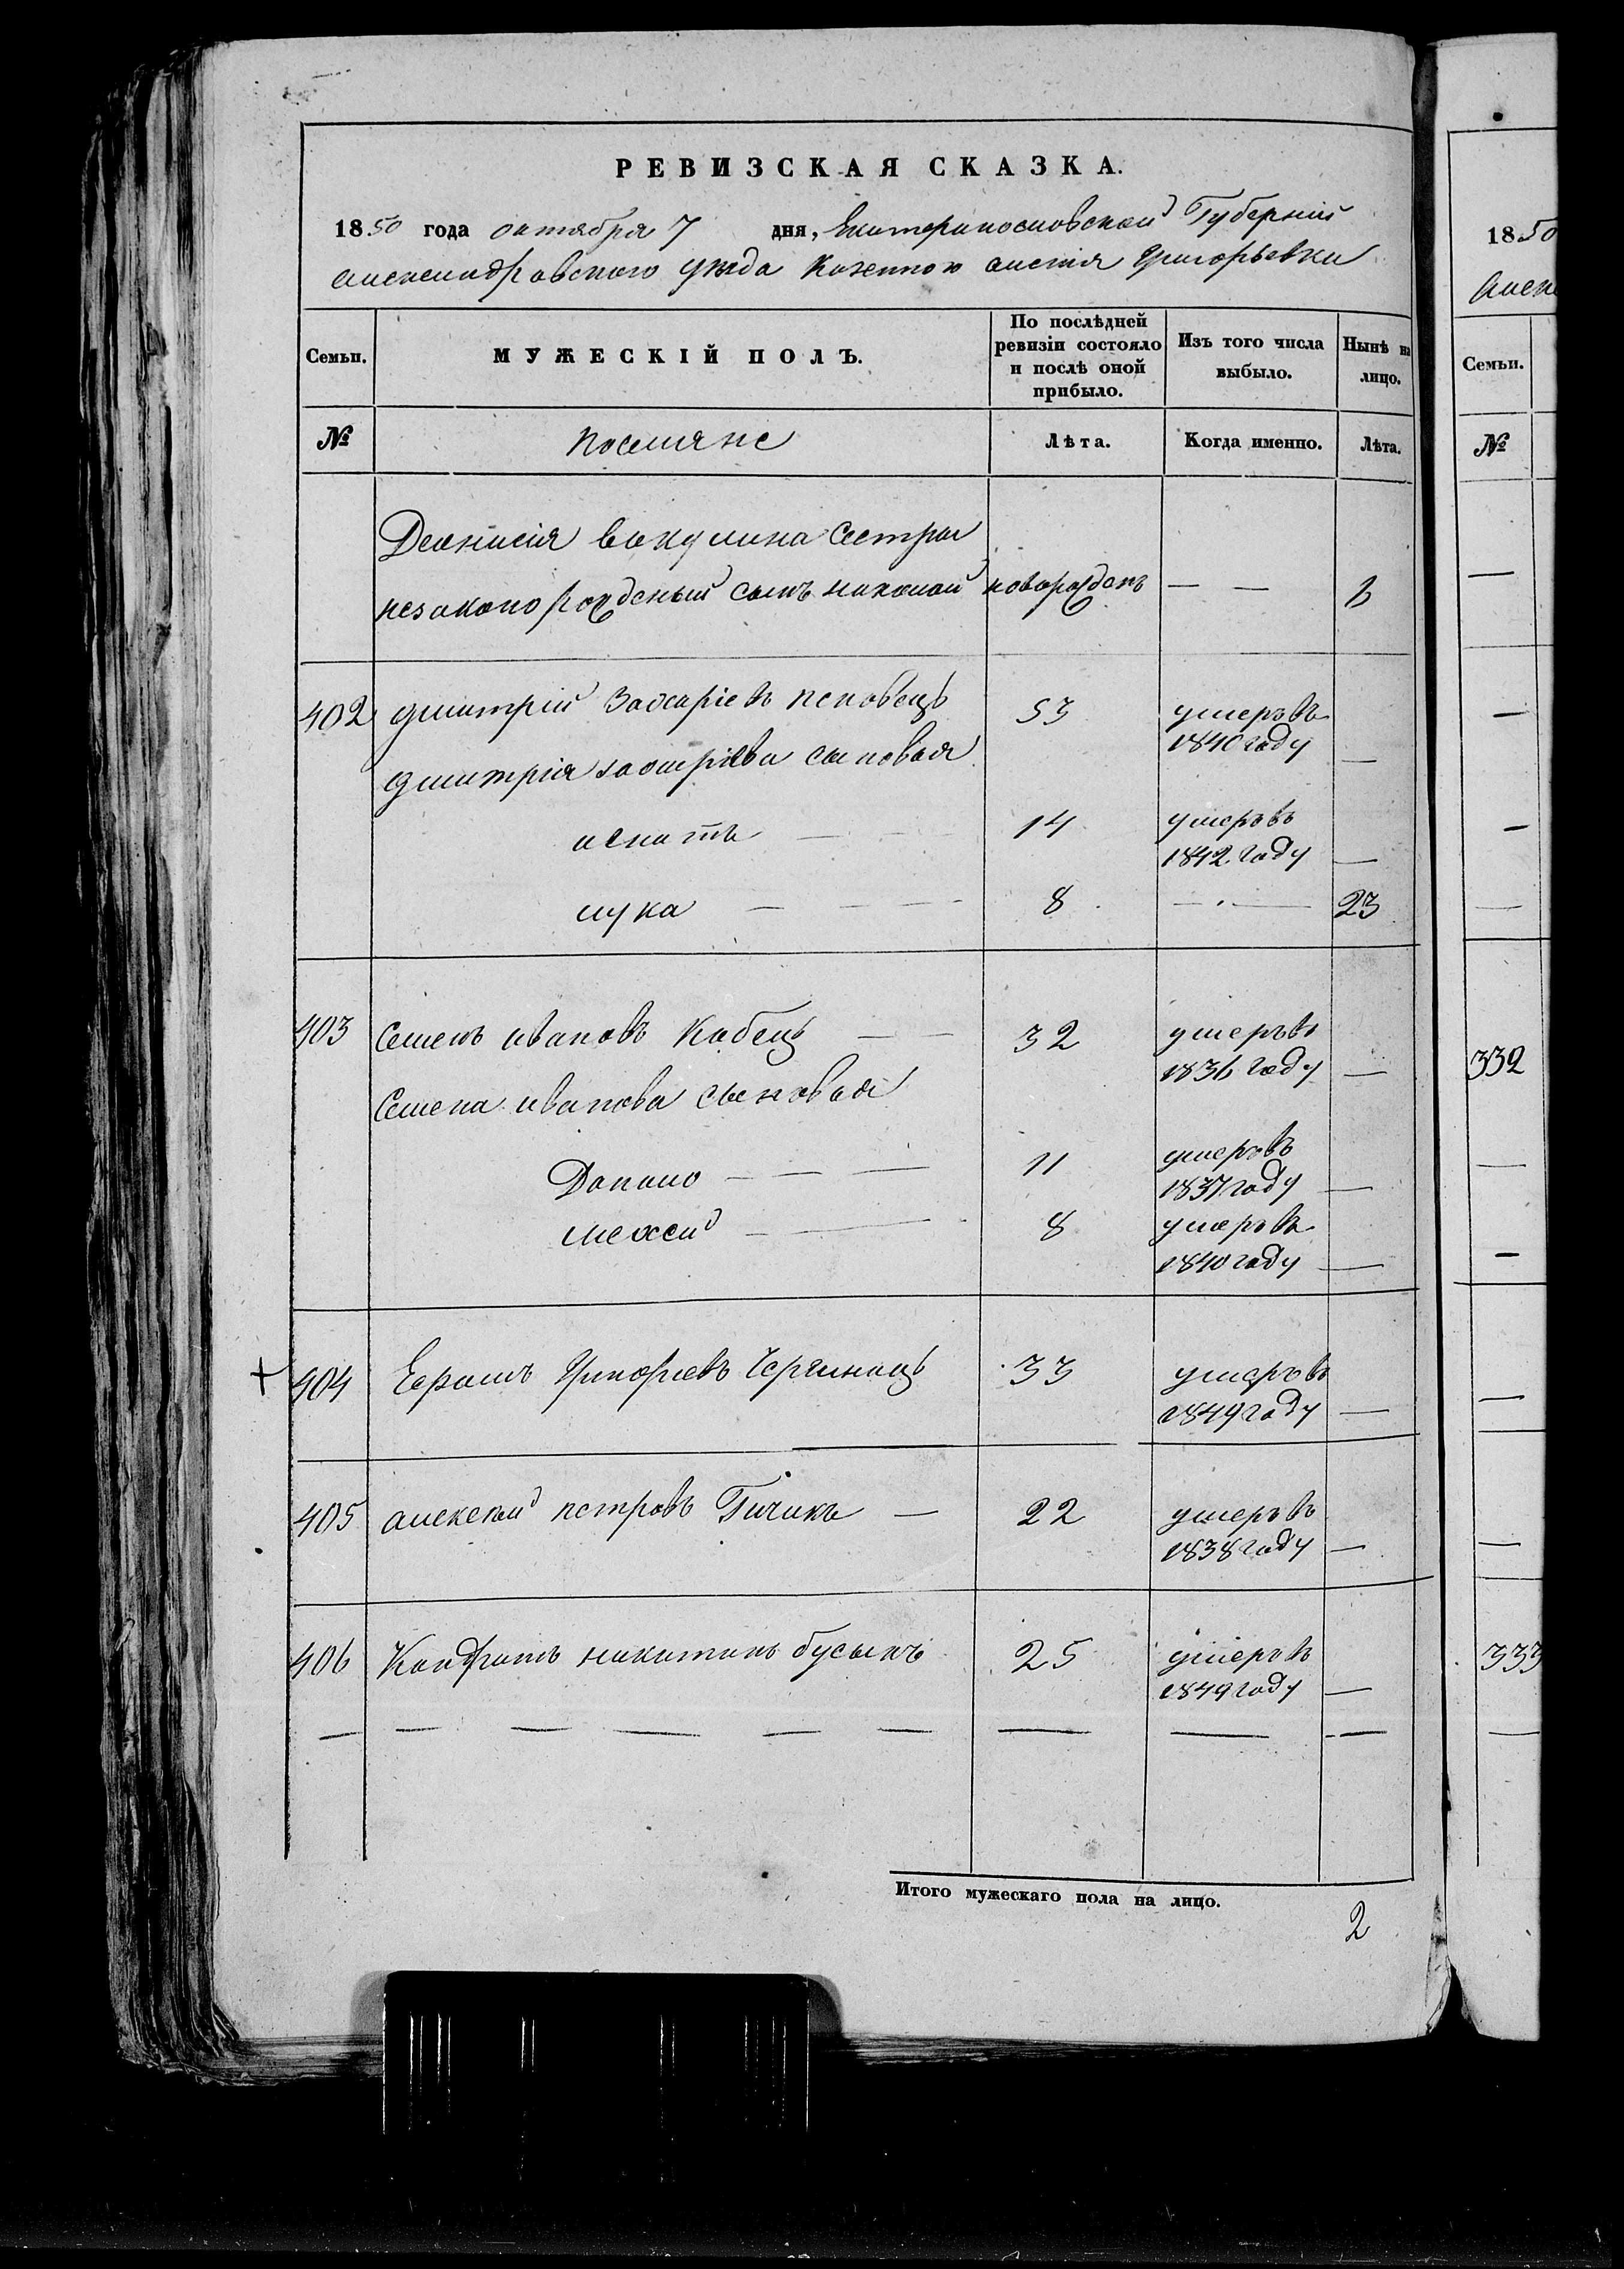 РЕВИЗСКАЯ СКАЗКА.
1850 года октября 7 дня, Екатеринославской Губерніи
Александровского уезда Казенного Григорьевки
Семьи. МУЖЕСКІЙ ПОЛЪ. По послѣдней ревизіи состояло и послѣ оной прибыло. Изъ того числа выбыло. Нынѣ на лицо.
№ поселяне Лѣта. Когда именно. Лѣта.
Сестры
незаконорожденый сынъ николай новорожденъ — —
402 дмитрій Захаріевъ 53 умеръ въ
1840 году —
дмитрія захаріева сыновья
игнатъ — — 14 умеръ въ
1842 году —
лука — — — — 8 — . — 23
403 Семенъ ивановъ Кобецъ — — 32 умеръ въ
1836 году —
Семена иванова сыновья
Данило — — — 11 умеръ въ
1837 году —
8 умеръ въ
1840 году —
404 Григорьевъ 33 умеръ въ
1849 году —
405 алексей петровъ — 22 умеръ въ
1838 году —
406 Кондратъ никитинъ 25 умеръ въ
1849 году —
Итого мужескаго пола на лицо.
2
1850
Семьи.
№
332
333